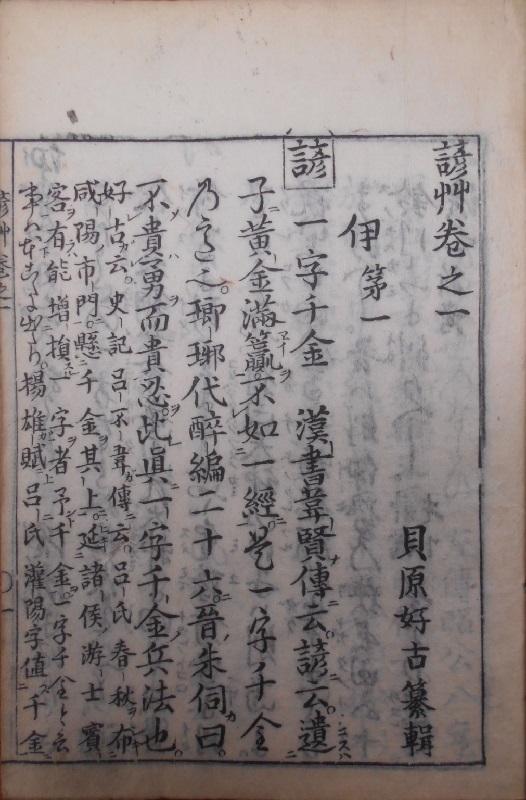 諺艸卷之一
貝原好古纂輯
伊第一
諺 一字千金 漢書韋賢傳云諺云遺
子黃金滿籯不如一經是一字ノ千金
乃意之瑯琊代醉編二十六晉朱伺曰
不貴勇而貴忍此眞一字千金兵法也
好古云史記呂不韋傳云呂氏春秋布
咸陽市門縣千金其上延諸侯游士賓
客有能增損一字者予千金一字千金と云
事ハもと出たり揚雄賦呂氏灌陽字値千金
諺艸卷之一 〇一